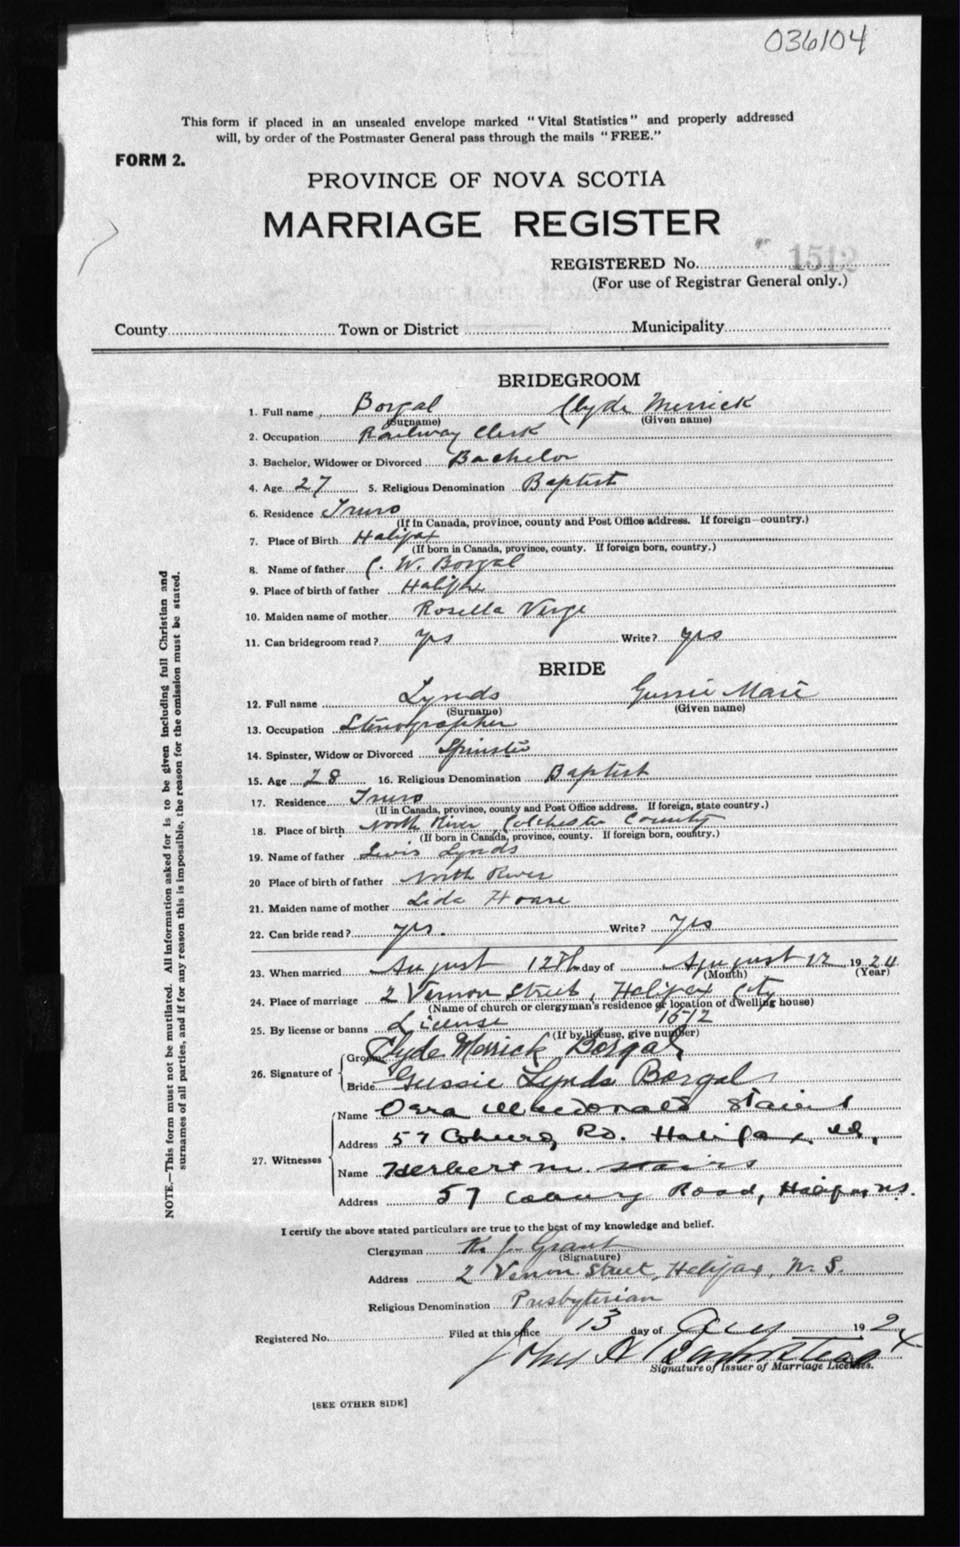 036104
This form if placed in an unsealed envelope marked "Vital Statistics" and properly addressed
will, by order of the Postmaster General pass through the mails "FREE."
FORM 2.
PROVINCE OF NOVA SCOTIA
MARRIAGE REGISTER
REGISTERED No. 1512
(For use of Registrar General only.)
County Town or District Municipality
BRIDEGROOM
1. Full name Borgal Clyde Merrick
(Surname) (Given name)
2. Occupation Railway Clerk
3. Bachelor, Widower or Divorced Bachelor
4. Age 27 5. Religious Denomination Baptist
6. Residence Truro
(If in Canada, province, county and Post Office address. If foreign—country.)
7. Place of Birth Halifax
(If born in Canada, province, county. If foreign born, country.)
8. Name of father C. W. Borgal
9. Place of birth of father Halifx
10. Maiden name of mother Rosella Verge
11. Can bridegroom read? yes Write? yes
BRIDE
12. Full name Lynds Gussie Marie
(Surname) (Given name)
13. Occupation Stenographer
14. Spinster, Widow or Divorced Spinster
15. Age 28 16. Religious Denomination Baptist
17. Residence Truro
(If in Canada, province, county and Post Office address. If foreign, state country.)
18. Place of birth North River, Colchester County
(If born in Canada, province, county. If foreign born, country.)
19. Name of father Lewis Lynds
20 Place of birth of father North River
21. Maiden name of mother Lida Hoare
22. Can bride read? yes. Write? Yes
23. When married August 12th day of August 12 1924
(Month) (Year)
24. Place of marriage 2 Vernon Street, Halifax City
(Name of church or clergyman's residence or location of dwelling house)
25. By license or banns License 1512
(If by license, give number)
26. Signature of
Groom Clyde Merrick Borgal
Bride Gussie Lynds Borgal
27. Witnesses
Name Macdonald Stairs
Address 57 Coburg Rd. Halifax
Name Herbert M. Stairs
Address 57 Coburg Road, Halifax, N.S.
I certify the above stated particulars are true to the best of my knowledge and belief.
Clergyman K. J. Grant
(Signature)
Address 2 Vernon Street, Halifax, N. S.
Religious Denomination Presbyterian
Registered No. Filed at this office 13 day of Aug 1924
John A
Signature of Issuer of Marriage Licenses.
[SEE OTHER SIDE]
NOTE.—This form must not be mutilated. All information asked for is to be given including full Christian and
surnames of all parties, and if for any reason this is impossible, the reason for the omission must be stated.